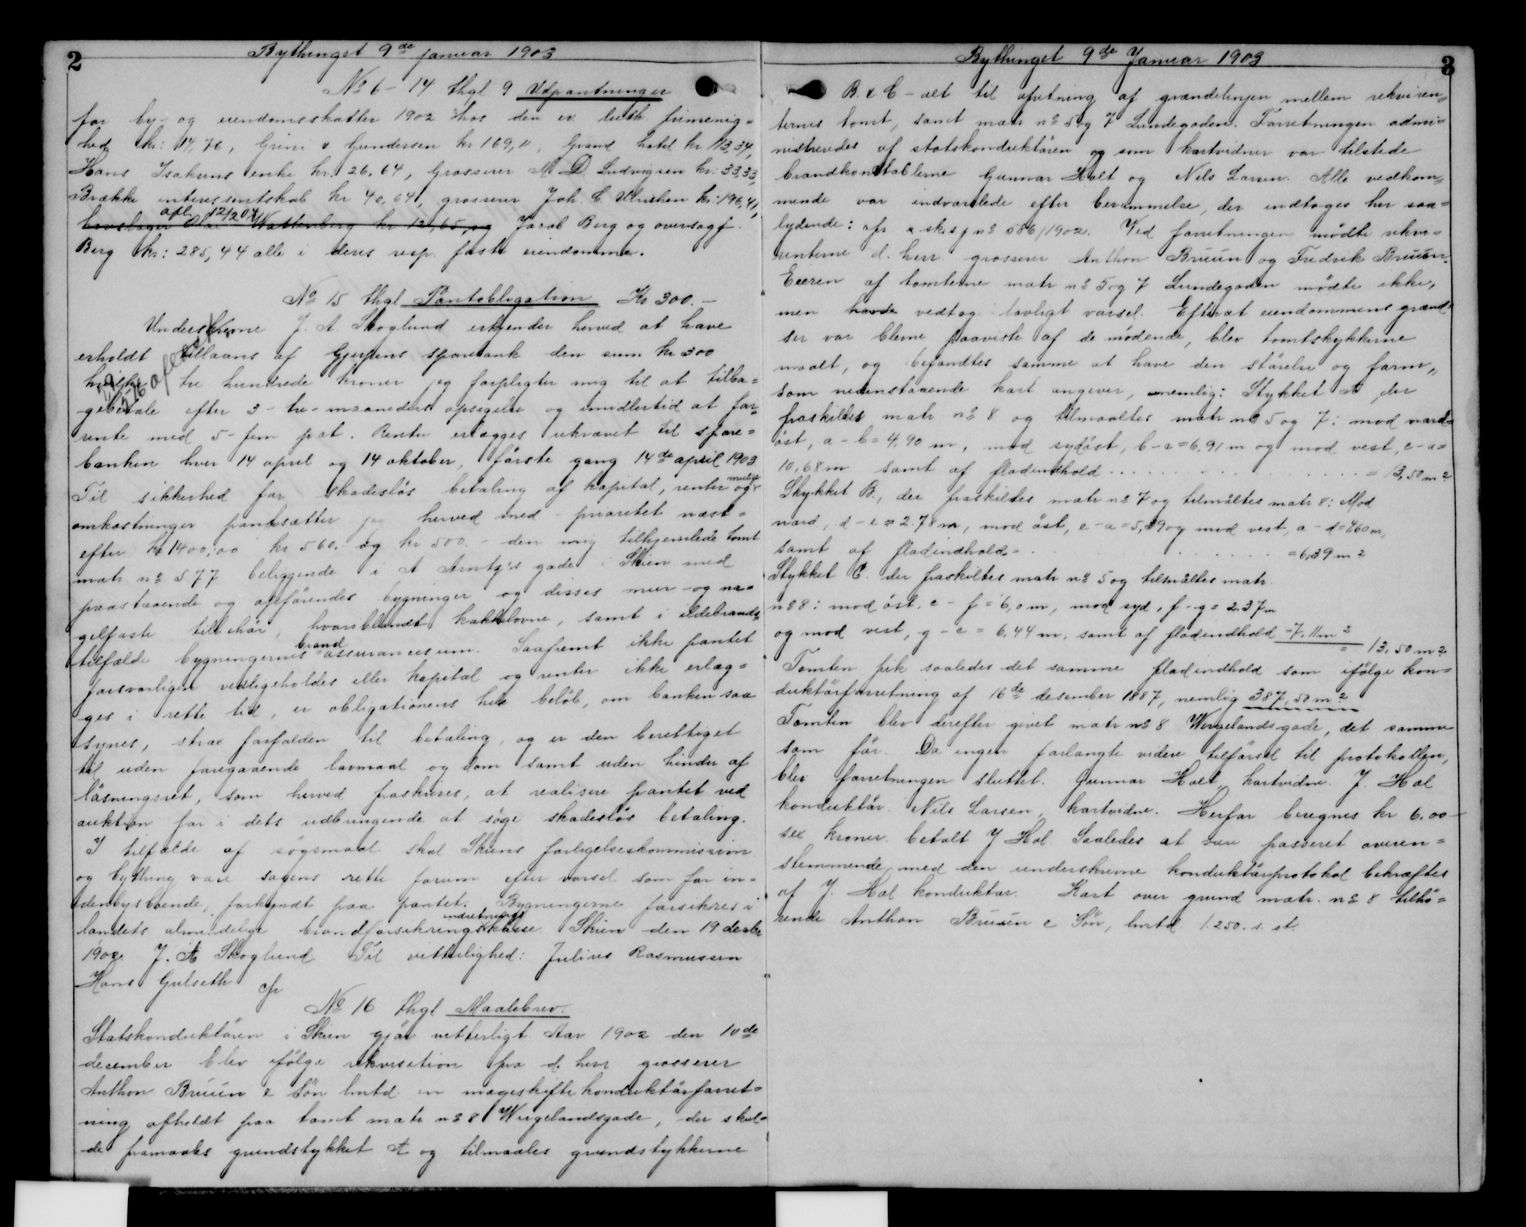 2
Bythinget 9de januar 1903
No 6 - 14 thgl 9 Udpantninger
for by- og eiendomsskatter 1902 hos den ev. luth. frimenig=
hed kr: 14,76, Grini & Gundersen kr 169,11, Grand hotel kr 113,34,
Hans Isaksens enke kr. 26.64, Grosserer M. D. Ludvigsen kr: 33,33,
Brække interessentskab kr 40,64, grosserer Joh. C. Ulrichsen kr: 196,41,
afl. 12/2 03
Wattenberg kr 121,65, og Jacob Berg og oversagf.
Berg kr: 285,44 alle i deres resp. faste eiendomme.
No 15 thgl Pantobligation Kr 300. -
Underskrevne J. A. Skoglund erkjender herved at have
erholdt tillaans af Gjerpens sparebank den sum kr 300
hvilke tre hundrede kroner jeg forpligter mig til at tilba=
gebetale efter 3 - tre - maaneders opsigelse og imidlertid at for=
rente med 5 - fem pct. Renten erlægges ukrævet til spare=
banken hver 14 april og 14 oktober, første gang 14de april 1903
Til sikkerhed for skadesløs betaling af kapital, renter og mulige
omkostninger pantsætter jeg herved med - prioritet næst=
efter kr 1400,00 kr 560. og kr 500. - den mig tilhjemlede tomt
matr. no 577 beliggende i A Arntz's gade i Skien med
paastaaende og opførendes bygninger og disses mur- og na=
gelfaste tilbehør, hvoriblandt kakkelovne, samt i ildebrands=
tilfælde bygningernes brandassurancesum. Saafremt ikke pantet
forsvarligen vedligeholdes eller kapital og renter ikke erlæg=
ges i rette tid, er obligationens hele beløb, om banken saa
synes, strax forfalden til betaling, og er den berettiget
til uden foregaaende lovmaal og dom samt uden hinder af
løsningsret, som herved fraskrives, at realisere pantet ved
auktion for i dets udbringende at søge skadesløs betaling.
I tilfælde af søgsmaal skal Skiens forligelseskommission
og bything være sagens rette forum efter varsel som for in=
denbysboende, forkyndt paa pantet. Bygningerne forsikres i
landets almindelige brandforsikringsindretnings kasse. Skien den 19 decbr
1902. J. A Skoglund Til vitterlighed: Julius Rasmussen
Hans Gulseth cfr
No 16 thgl Maalebrev.
Statskonduktøren i Skien gjør vitterligt Aar 1902 den 10de
december blev ifølge rekvisition fra d. herr grosserer
Anthon Bruun & Søn hmtd en mageskifte konduktørforret=
ning afholdt paa tomt matr no 8 Wergelandsgade, der skul=
de framaales grundstykket A og tilmaales grundstykkerne
3
Bythinget 9de Januar 1903
B & C - alt til opretning af grændelinjen mellem rekviren=
ternes tomt, samt matr no 5 og 7 Lundegaden. Forretningen admi=
nistreredes af statskonduktøren og som kartvidner var tilstede
brandkonstablerne Gunnar Holt og Nils Larsen. Alle vedkom=
mende var indvarslede efter berammelse, der indtages her saa=
lydende: cfr. sksj no 586/1902. Ved forretningen mødte rekvi=
renterne d. herr grosserer Anthon Bruun og Fredrik Bruun.
Eieren af tomterne matr no 5 og 7 Lundegaden mødte ikke,
men havde vedtog lovligt varsel. Efterat eiendommens grænd=
ser var blevne paaviste af de mødende, blev tomtstykkerne
maalt, og befandtes samme at have den størelse og form,
som nedenstaaende kart angiver, nemlig: Stykket A, der
fraskildes matr no 8 og tilmaaltes matr no 5 og 7: mod nord=
øst, a - b = 4,90 m, mod sydøst, b - c = 6,91 m og mod vest, c - a =
10,68 m samt af fladeindhold . . . . = 13,50 m2
Stykket B, der fraskildes matr no 7 og tilmaaltes matr 8: Mod
nord, d - e = 2.78 m, mod øst, e - a = 5,39 og mod vest, a - d = 4,60 m,
samt af fladindhold . . . . = 6,39 m2
Stykket C. der fraskiltes matr no 5 og tilmaaltes matr.
no 8: mod øst, e - f = 6,0 m, mod syd, f - g = 2.37 m
og mod vest, g - e = 6.44 m, samt af fladindhold = 7,11 m2 = 13,50 m2
Tomten fik saaledes det samme fladindhold som ifølge kon=
duktørforretning af 16de desember 1887, nemlig 387,50 m2
Tomten blev derefter givet matr no 8 Wergelandsgade, det samme
som før. Da ingen forlangte videre tilførsel til protokollen,
blev forretningen sluttet. Gunnar Holt, kartvidne. J. Hol
konduktør. Nils Larsen, kartvidne. Herfor beregnes kr 6.00 -
sex kroner betalt J Hol Saaledes at være passeret overen=
stemmende med den underskrevne konduktørprotokol bekræftes
af J. Hol konduktør. Kart over grund matr. no 8 tilhø=
rende Anthon Bruun & Søn, hmtd 1:250. s. st.